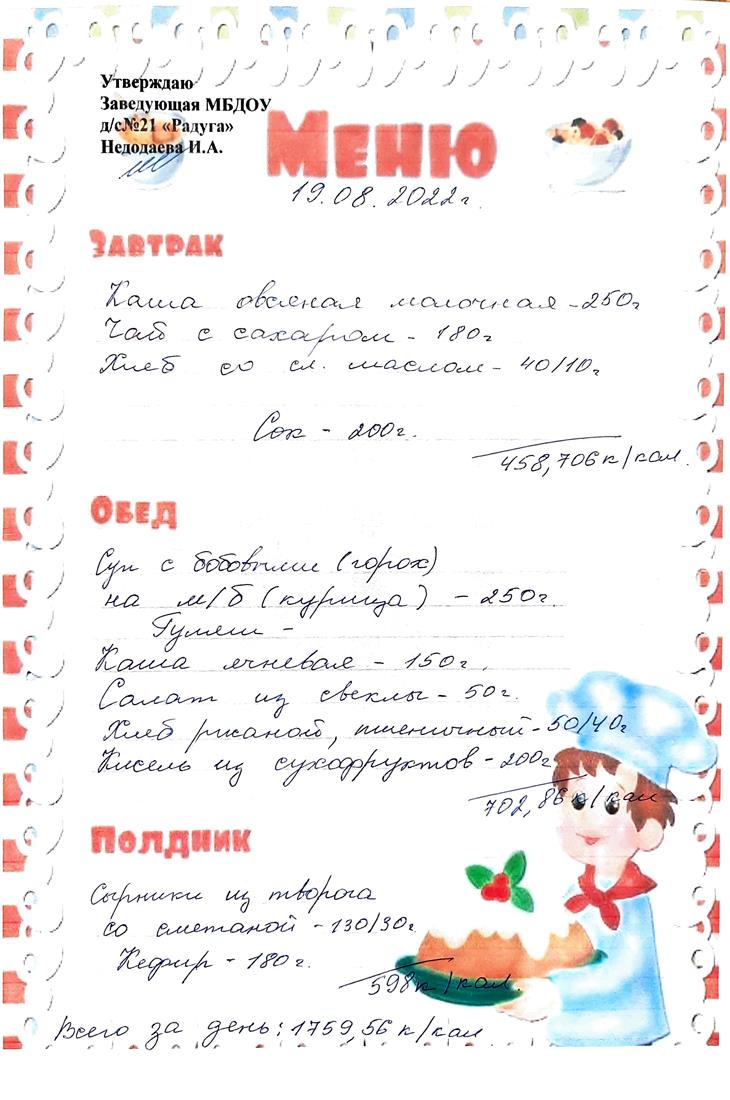 Утверждаю
Заведующая МБДОУ
д/с№21 «Радуга»
Недодаева И.А.
Меню
19.08.2022г.
Завтрак
Каша овсяная молочная - 250г
Чай с сахаром - 180г
Хлеб со сл. маслом - 40/10г
Сок - 200г.
458,706 к/кал.
Обед
Суп с бобовыми (горох)
на м/б (курица) - 250г.
Гуляш -
Каша ячневая - 150г.
Салат из свеклы - 50г.
Хлеб ржаной, пшеничный - 50/40г
Кисель из сухофруктов - 200г
702,86 к/кал
Полдник
Сырники из творога
со сметаной - 130/30г
Кефир - 180г.
598 к/кал.
Всего за день: 1759,56 к/кал